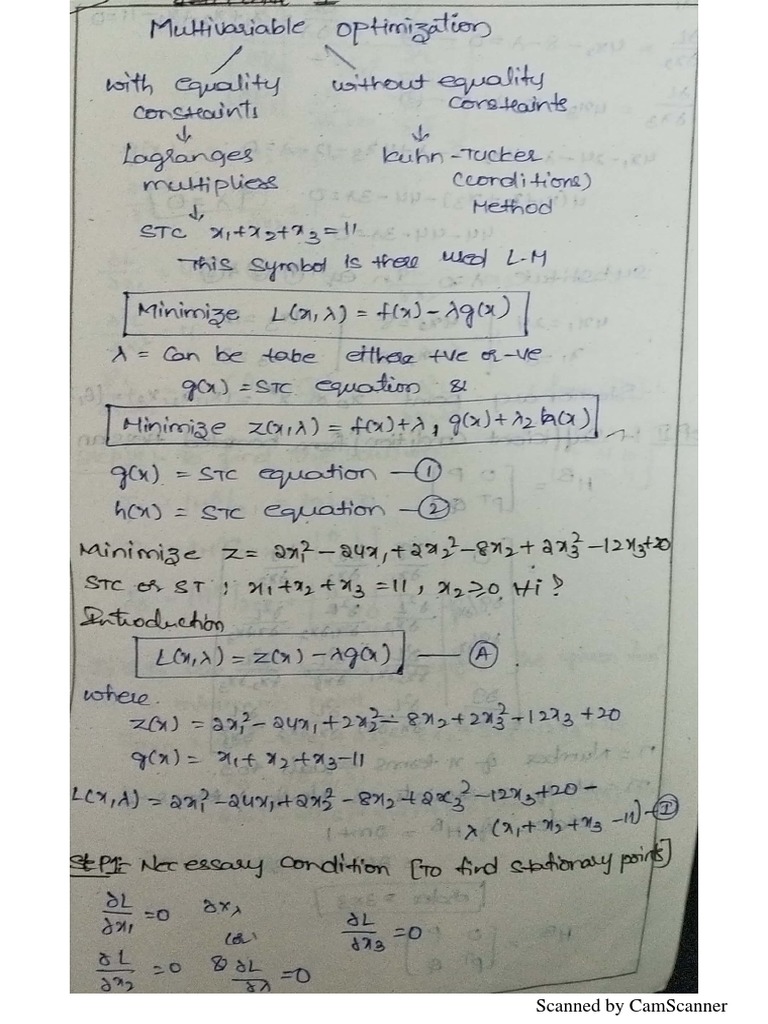 Multivariable optimization
with equality constraints
without equality constraints
Lagranges multipliers
Kuhn-Tucker (conditions) Method
STC x₁+x₂+x₃=11
This symbol is there used L-M
Minimize L(x,λ) = f(x)-λg(x)
λ = Can be take either +ve or -ve
g(x) = STC equation &
Minimize z(x,λ) = f(x)+λ, g(x)+λ₂ h(x)
g(x) = STC equation —①
h(x) = STC equation —②
Minimize z= 2x₁²-24x₁+2x₂²-8x₂+2x₃²-12x₃+20
STC or ST : x₁+x₂+x₃=11, x₂≥0, ∀i?
Introduction
L(x,λ) = z(x)-λg(x) — Ⓐ
where.
z(x) = 2x₁²-24x₁+2x₂²-8x₂+2x₃²-12x₃+20
g(x) = x₁+x₂+x₃-11
L(x,λ) = 2x₁²-24x₁+2x₂²-8x₂+2x₃²-12x₃+20-
λ (x₁+x₂+x₃-11)-Ⓘ
Step1: Necessary Condition [To find stationary points]
∂L/∂x₁ =0 ∂xλ (or) ∂L/∂x₃ =0
∂L/∂x₂ =0 & ∂L/∂λ =0
Scanned by CamScanner